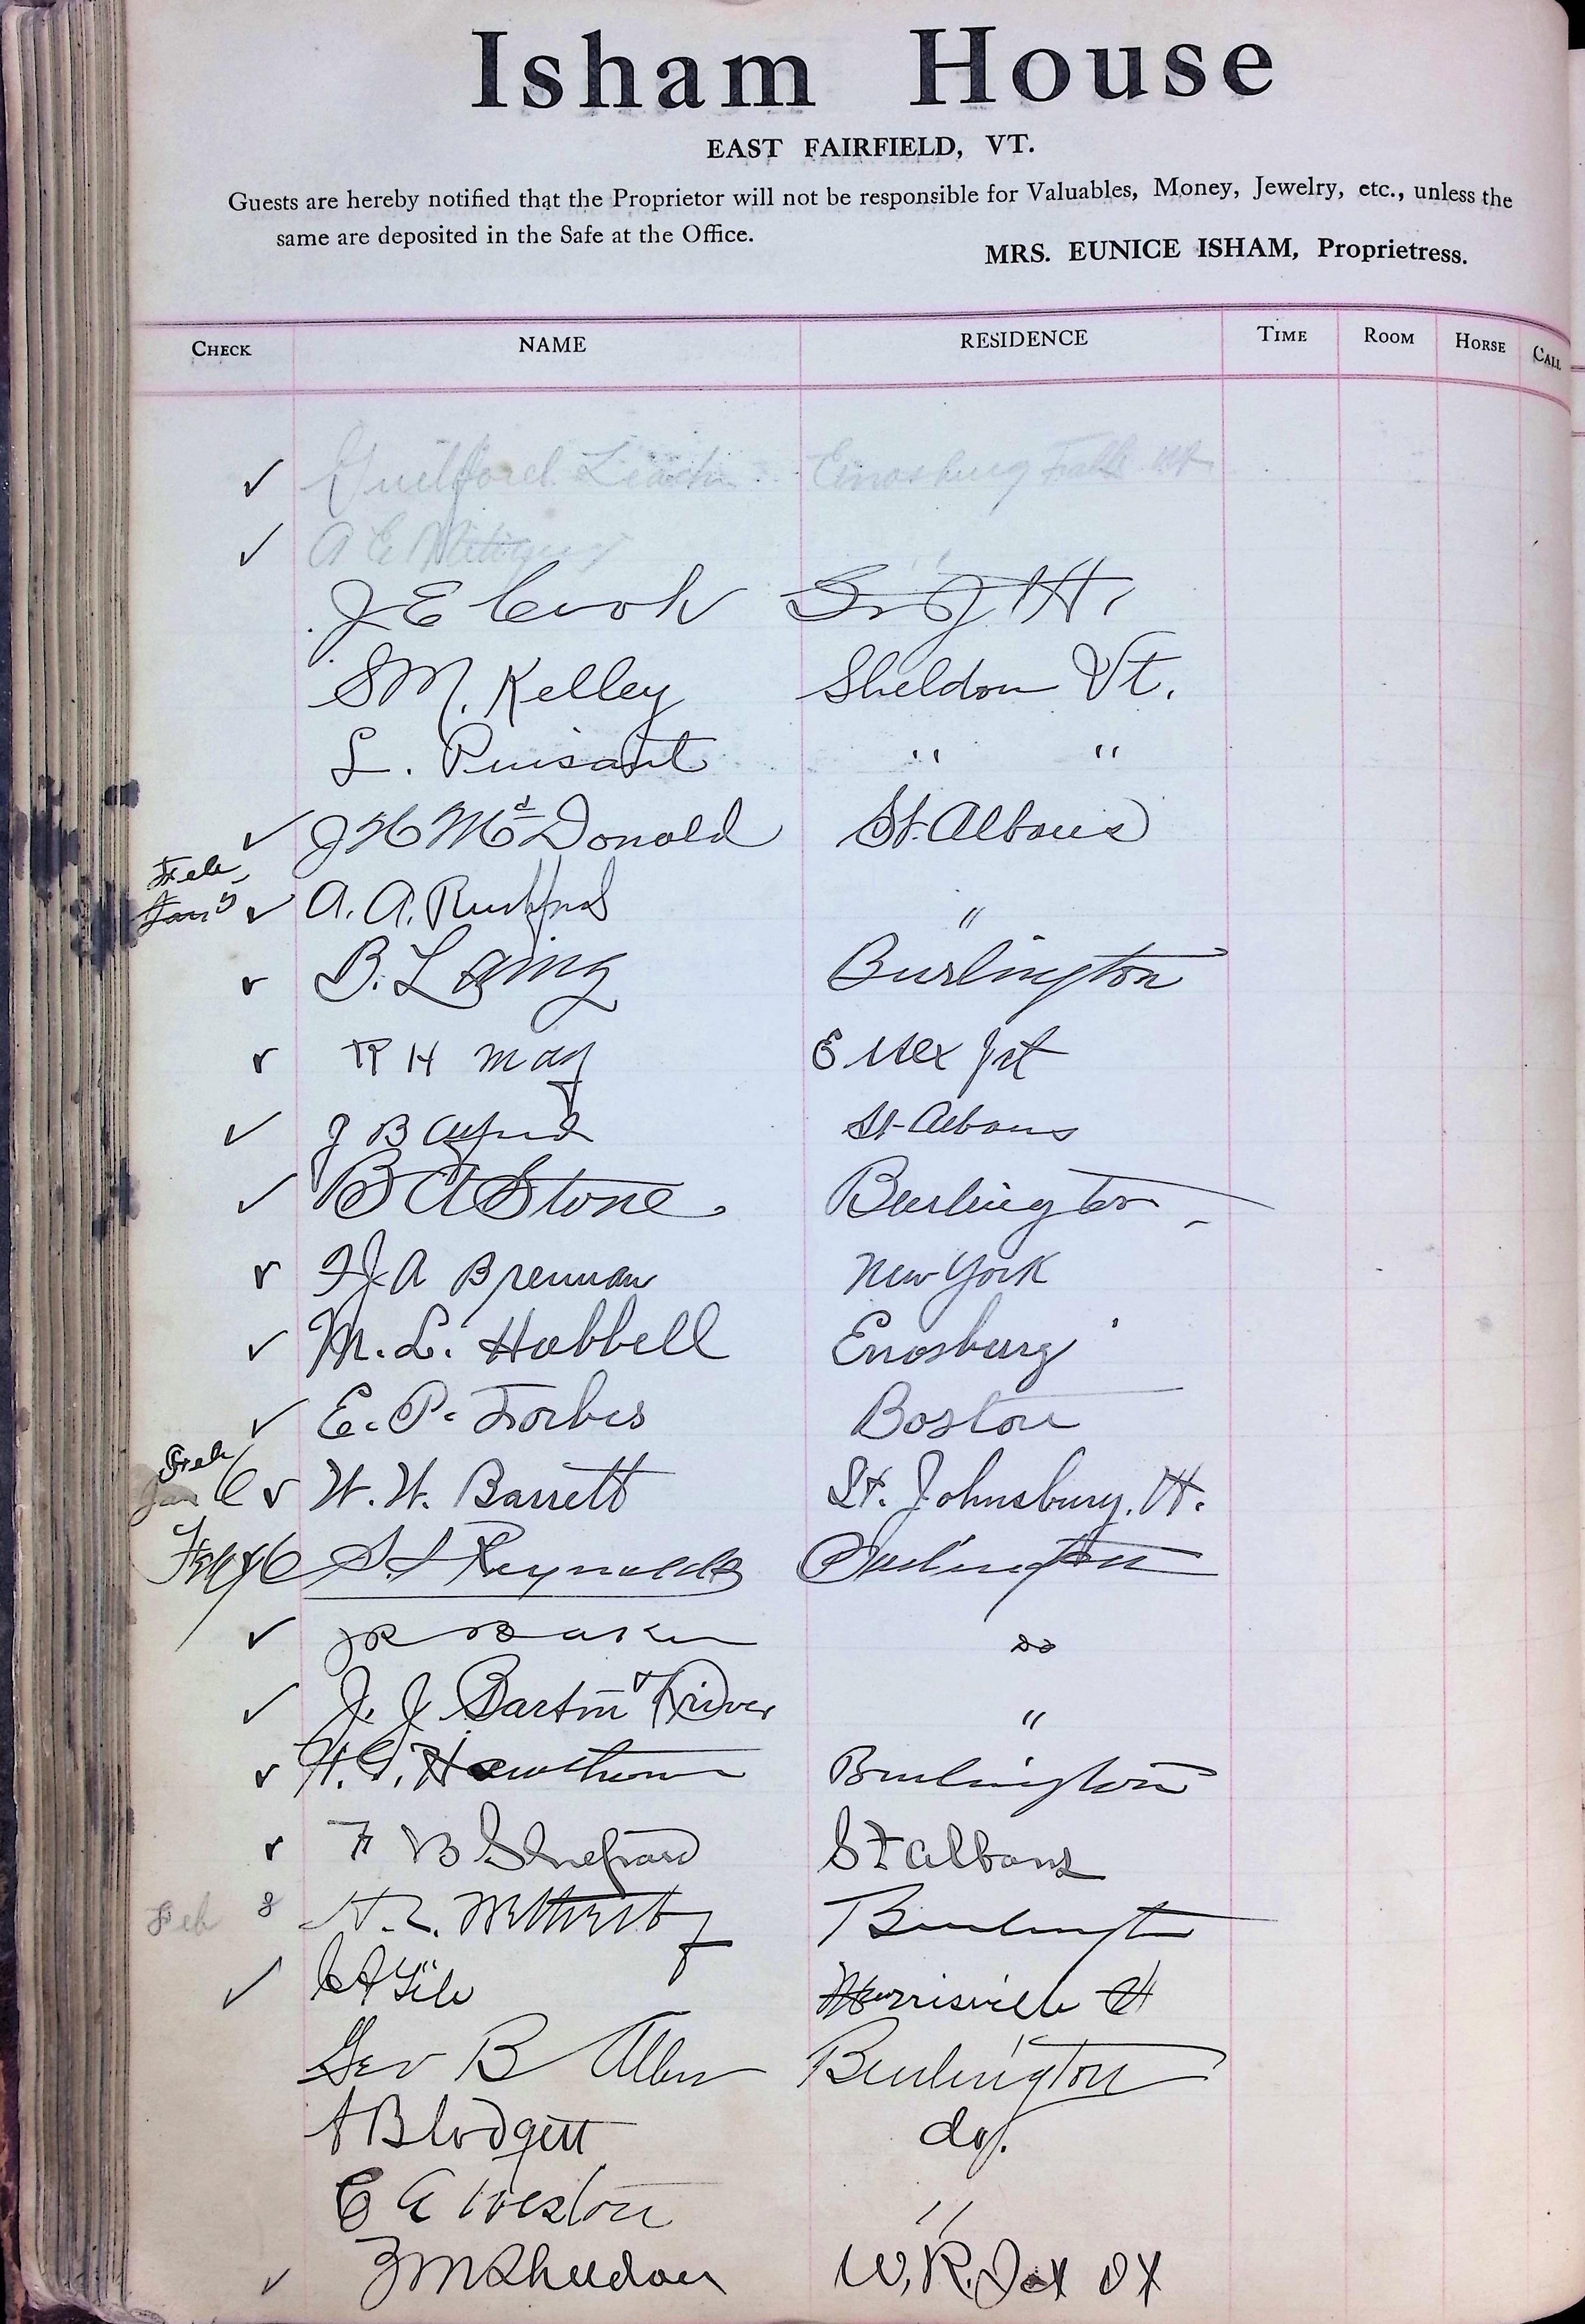 Isham House
EAST FAIRFIELD, VT.
Guests are hereby notified that the Proprietor will not be responsible for Valuables, Money, Jewelry, etc., unless the
same are deposited in the Safe at the Office.
MRS. EUNICE ISHAM, Proprietress.
CHECK NAME RESIDENCE TIME ROOM HORSE CALL
✓ Guilford Leach Enosburg Falls Vt
✓ A E
J E Cook
S M. Kelley Sheldon Vt.
L. Puisant " "
✓ J H McDonald St. Albans
Feb
Jan 5 ✓ A. A. Rushford "
✓ B. Laing Burlington
✓ R H May Essex Jct
✓ J B St-Albans
✓ B A Stone Burlington
✓ J A Brennan New York
✓ M. L. Hubbell Enosburg
✓ E. P. Forbes Boston
Feb
Jan 6 ✓ W. W. Barrett St. Johnsbury, Vt.
Feby 6 Reynolds Burlington
✓ J R Baker do
✓ J. J. Barton & Driver "
✓ Hawthorne Burlington
✓ F B Shepard St Albans
Feb 8 Burlington
✓ Morrisville Vt
Geo B Allen Burlington
A Blodgett do.
C E Weston "
✓ M Sheldon W. R. Jct Vt